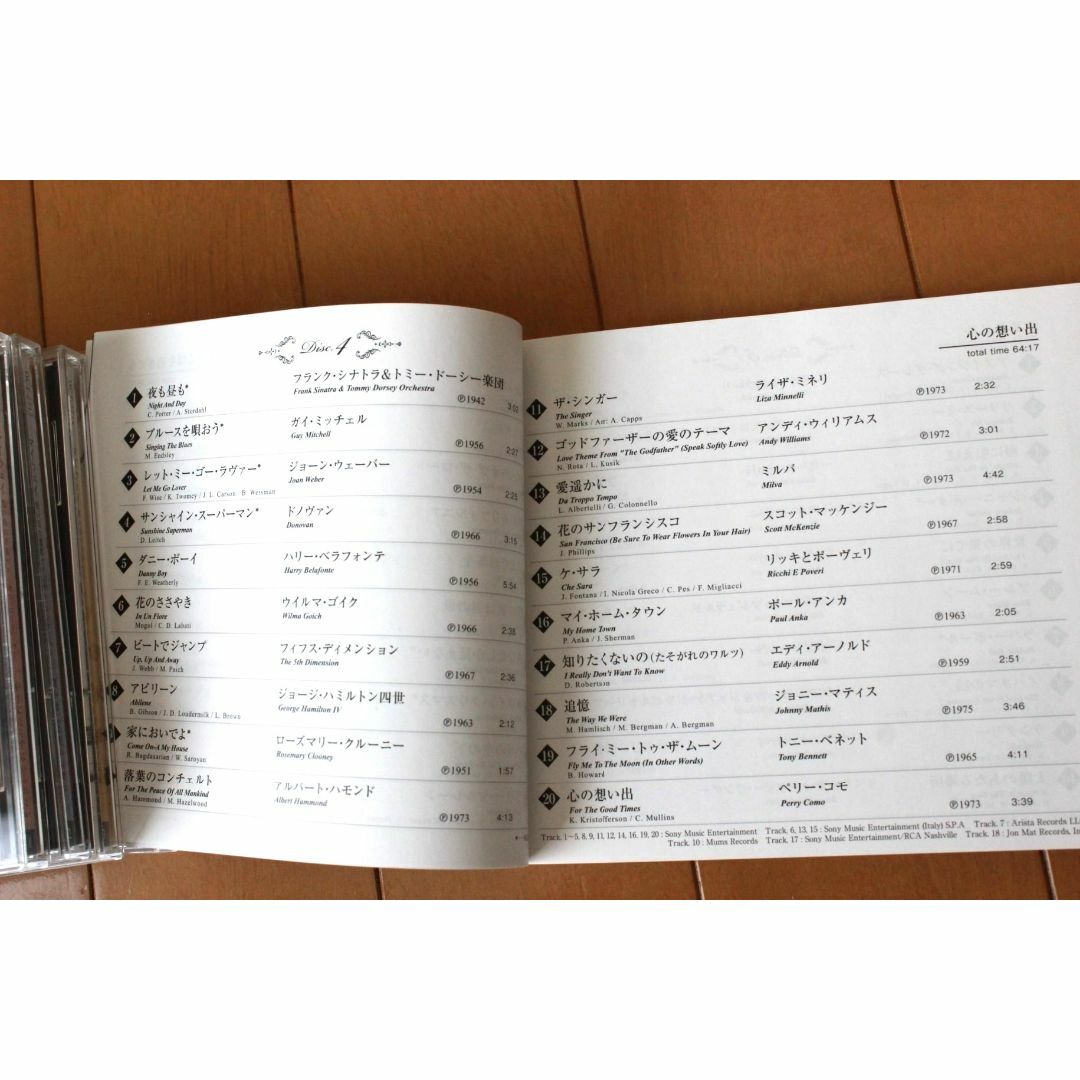 Disc. 4
1 夜も昼も* フランク・シナトラ&トミー・ドーシー楽団
Night And Day Frank Sinatra & Tommy Dorsey Orchestra
C. Porter / A. Stordahl ℗1942 3:03
2 ブルースを唄おう* ガイ・ミッチェル
Singing The Blues Guy Mitchell
M. Endsley ℗1956 2:27
3 レット・ミー・ゴー・ラヴァー* ジョーン・ウェーバー
Let Me Go Lover Joan Weber
F. Wise / K. Twomey / J. L. Carson / B. Weisman ℗1954 2:25
4 サンシャイン・スーパーマン* ドノヴァン
Sunshine Superman Donovan
D. Leitch ℗1966 3:15
5 ダニー・ボーイ ハリー・ベラフォンテ
Danny Boy Harry Belafonte
F. E. Weatherly ℗1956 5:54
6 花のささやき ウイルマ・ゴイク
In Un Fiore Wilma Goich
Mogol / C. D. Labati ℗1966 2:38
7 ビートでジャンプ フィフス・ディメンション
Up, Up And Away The 5th Dimension
J. Webb / M. Paich ℗1967 2:36
8 アビリーン ジョージ・ハミルトン四世
Abilene George Hamilton IV
B. Gibson / J. D. Loudermilk / L. Brown ℗1963 2:12
家においでよ* ローズマリー・クルーニー
Come On-A My House Rosemary Clooney
R. Bagdasarian / W. Saroyan ℗1951 1:57
落葉のコンチェルト アルバート・ハモンド
For The Peace Of All Mankind Albert Hammond
A. Hammond / M. Hazelwood ℗1973 4:13
心の想い出
total time 64:17
11 ザ・シンガー ライザ・ミネリ ℗1973 2:32
The Singer Liza Minnelli
W. Marks / Arr: A. Capps
12 ゴッドファーザーの愛のテーマ アンディ・ウィリアムス ℗1972 3:01
Love Theme From "The Godfather" (Speak Softly Love) Andy Williams
N. Rota / L. Kusik
13 愛遥かに ミルバ ℗1973 4:42
Da Troppo Tempo Milva
L. Albertelli / G. Colonnello
14 花のサンフランシスコ スコット・マッケンジー ℗1967 2:58
San Francisco (Be Sure To Wear Flowers In Your Hair) Scott McKenzie
J. Phillips
15 ケ・サラ リッキとポーヴェリ ℗1971 2:59
Che Sara Ricchi E Poveri
J. Fontana / I. Nicola Greco / C. Pes / F. Migliacci
16 マイ・ホーム・タウン ポール・アンカ ℗1963 2:05
My Home Town Paul Anka
P. Anka / J. Sherman
17 知りたくないの(たそがれのワルツ) エディ・アーノルド ℗1959 2:51
I Really Don't Want To Know Eddy Arnold
D. Robertson
18 追憶 ジョニー・マティス ℗1975 3:46
The Way We Were Johnny Mathis
M. Hamlisch / M. Bergman / A. Bergman
19 フライ・ミー・トゥ・ザ・ムーン トニー・ベネット ℗1965 4:11
Fly Me To The Moon (In Other Words) Tony Bennett
B. Howard
20 心の想い出 ペリー・コモ ℗1973 3:39
For The Good Times Perry Como
K. Kristofferson / C. Mullins
Track. 1~5, 8, 9, 11, 12, 14, 16, 19, 20 : Sony Music Entertainment Track. 6, 13, 15 : Sony Music Entertainment (Italy) S.P.A Track. 7 : Arista Records
Track. 10 : Mums Records Track. 17 : Sony Music Entertainment/RCA Nashville Track. 18 : Jon Mat Records